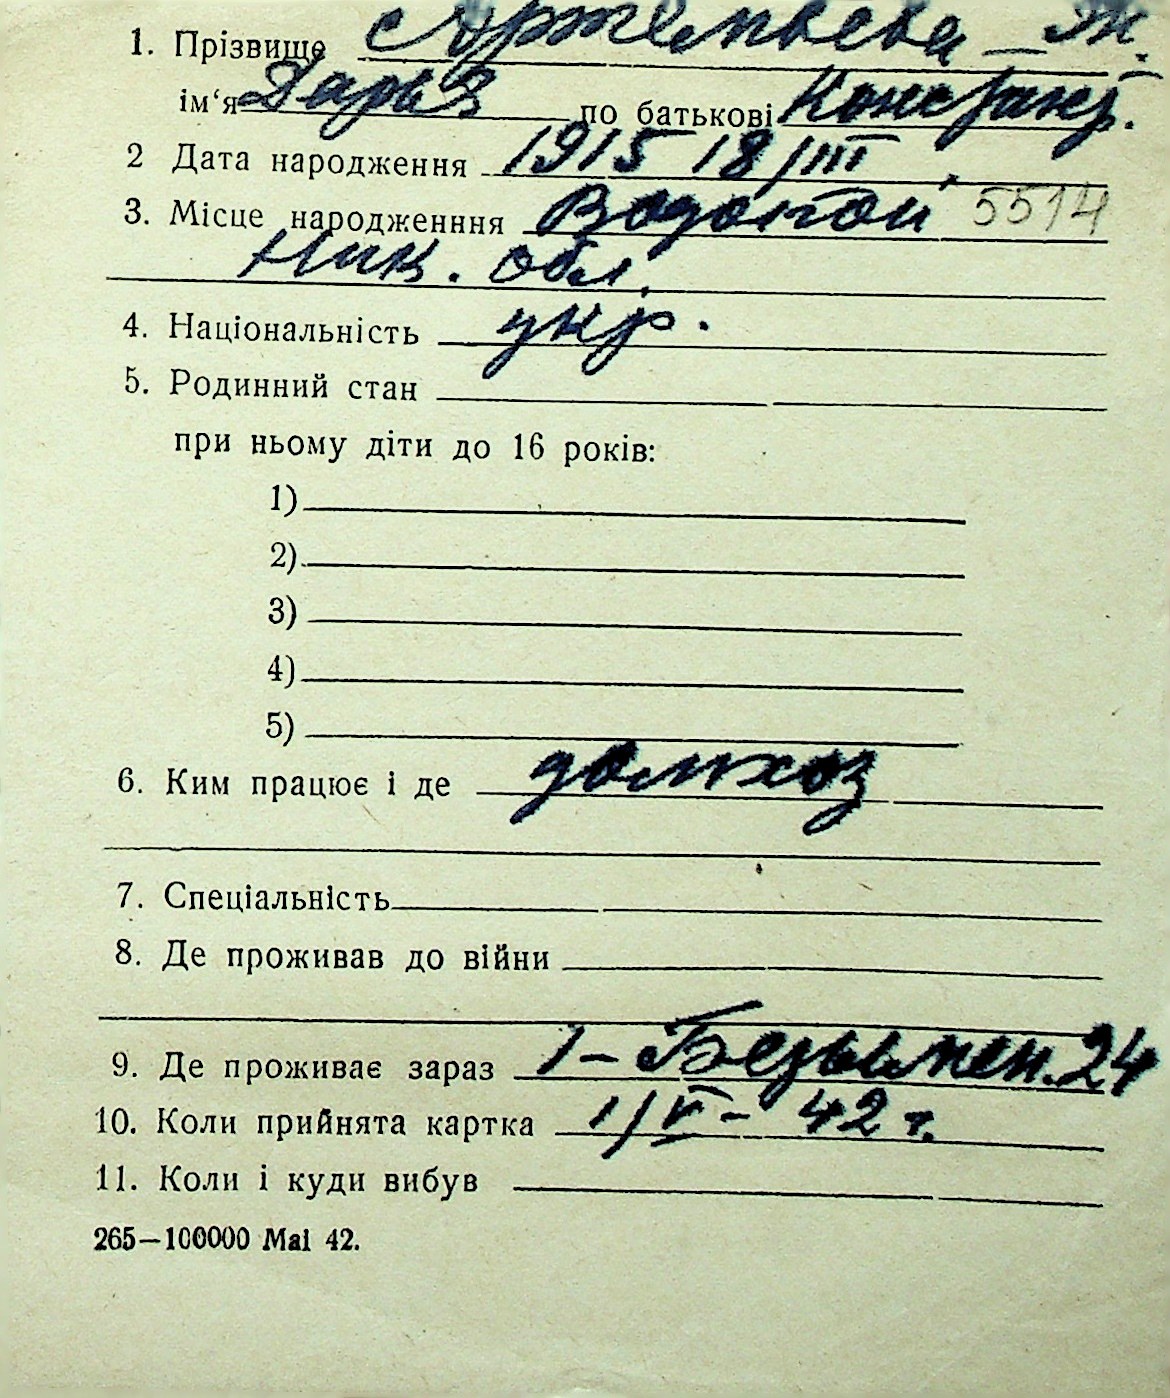 1. Прізвище Артемьева – Ж.
ім‘я Дарья по батькові Констант.
2 Дата народження 1915 18/III
3. Місце народженння Водопой 5514
Ник. обл.
4. Національність укр.
5. Родинний стан
при ньому діти до 16 років:
1)
2)
3)
4)
5)
6. Ким працює і де домхоз
7. Спеціальність
8. Де проживав до війни
9. Де проживає зараз 1–Безымен. 24
10. Коли прийнята картка 1/V– 42 г.
11. Коли і куди вибув
265—100000 Mai 42.